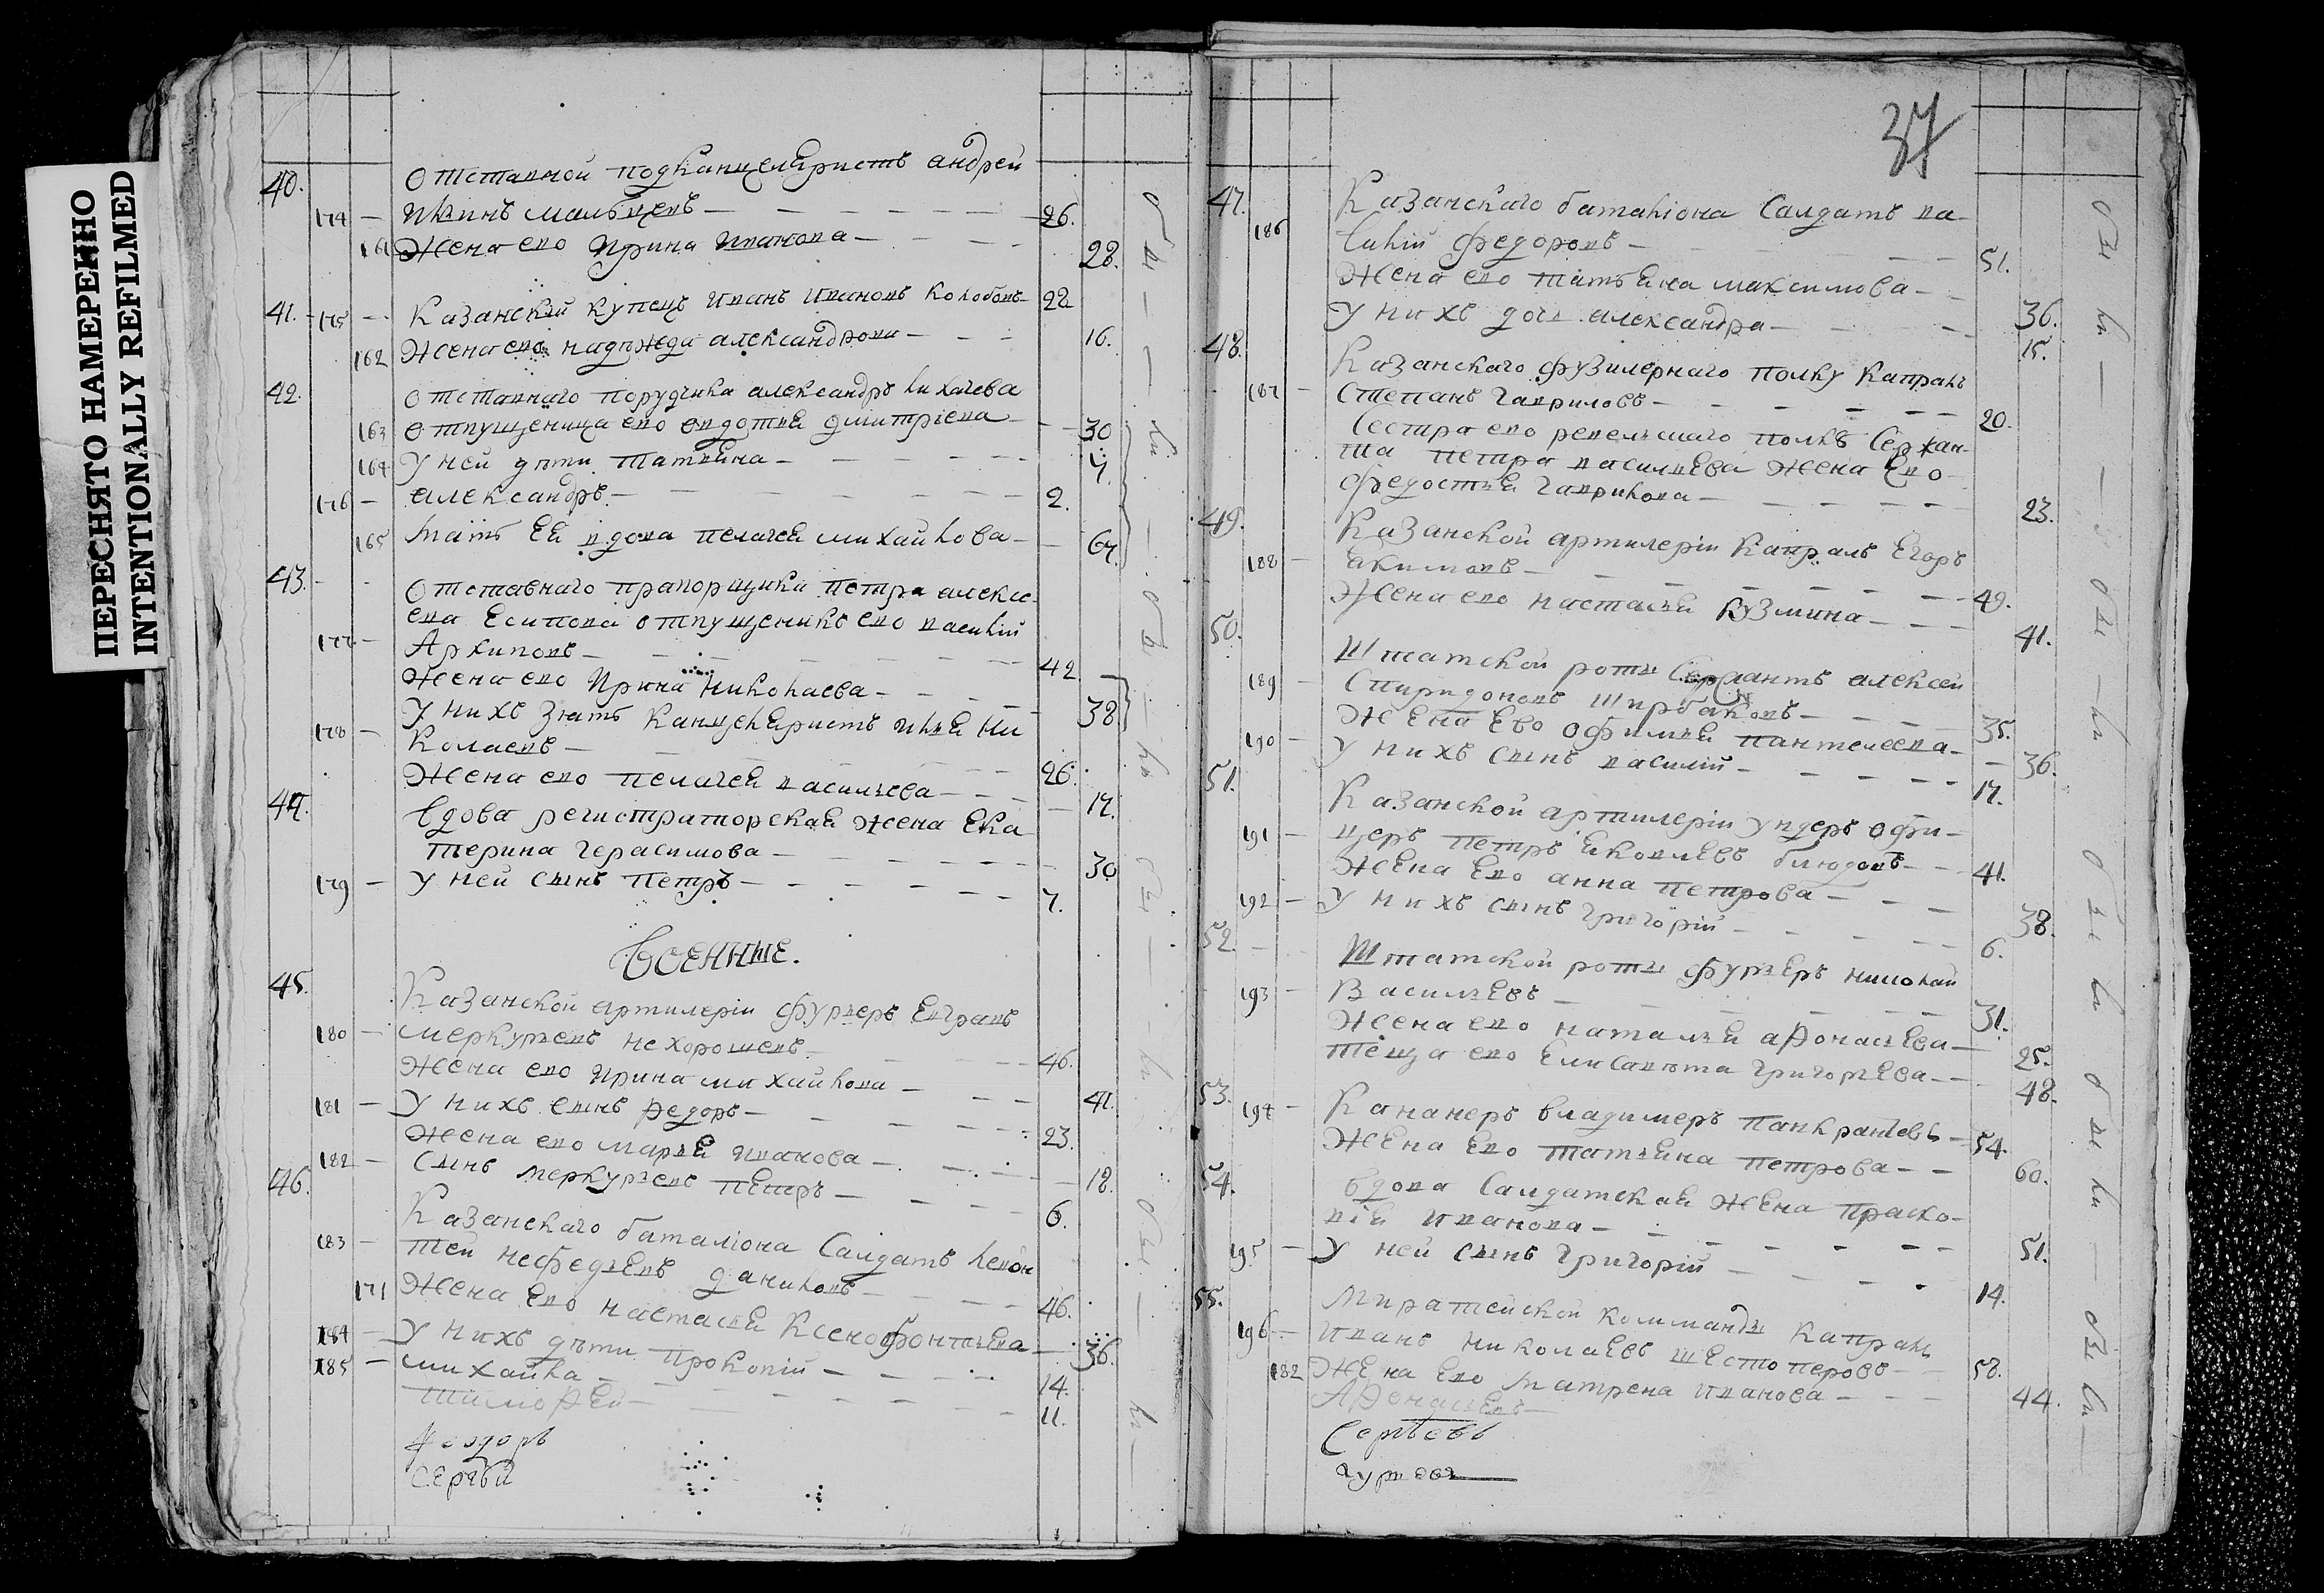 ПЕРЕСНЯТО НАМЕРЕННО
INTENTIONALLY REFILMED
40. Отставной подканцеляристъ андрей
174 — Ильинъ мальцевъ — 26.
161 Жена ево Ирина Иванова — 28.
41. 175 — Казанскій купецъ Иванъ Ивановъ Колобовъ 22
162 Жена ево надѣжда александрова — 16.
42. Отставнаго порудчика александръ лихачева
163 отпущеница ево овдотья дмитріева — 30
164 У ней дѣти Татьяна — 4.
176 — александръ — 2.
165 Мать Ея вдова пелагея михайлова — 64.
43. Отставнаго прапорщика петра алексе
ева Есипова отпущеникъ ево василій
177 — Архиповъ — 42
Жена ево Ирина Николаева — 38
У нихъ зять Канцеляристъ Илья Ни
178 — колаевъ — 26.
Жена ево пелагея васильева — 17.
44. Вдова регистраторская жена Ека
терина Герасимова — 30
179 — У ней сынъ петръ — 7.
Военные.
45. Казанской артилеріи фурьеръ Евграфъ
180 — меркурьевъ нехорошевъ — 46.
Жена ево Ирина михайлова — 41.
181 — У нихъ сынъ федоръ — 23.
Жена ево марья Иванова — 18.
182 — Сынъ меркурьевъ петръ — 6.
46. Казанскаго баталіона Салдатъ леон
183 — тей нефедьевъ даниловъ — 46.
171 Жена Ево настасья Ксенофонтьева — 36.
184 — У нихъ дѣти прокопій — 14.
185 — михайла — 11.
тимофей —
Феодоръ
Сергѣй
37
47. Казанскаго баталіона Салдатъ ва-
186 силій федоровъ — 51.
Жена ево татьяна максимова — 36.
У нихъ дочь александра — 15.
48. Казанскаго фузилернаго полку Капралъ
187 — Степанъ Гавриловъ — 20.
Сестра ево ревельскаго полкъ Сержан-
та петра васильева жена Ево
федостья Гаврилова — 23.
49. Казанской артилеріи Капралъ Егоръ
188 — Екимовъ — 49.
Жена ево настасья Кузмина — 41.
50. Штатской роты Сержантъ алексей
189 — Спиридоновъ Широаковъ — 35.
Жена Ево Офимья пантелеева — 36.
190 — У нихъ сынъ василій — 17.
51. Казанской артилеріи Ундеръ офи-
191 — церъ петръ Яковлевъ блюдовъ — 41.
Жена Ево анна петрова — 38.
192 — У нихъ сынъ Григорій — 6.
52. Штатской роты фурьеръ николай
193 — Васильевъ — 31.
Жена ево наталья афонасьева — 25.
теща ево Елисавета Григорьева — 48.
53. 194 — Кананеръ владимеръ панкратьевъ — 54.
Жена Ево татьяна петрова — 60.
54. Вдова Салдатская жена праско-
вія Иванова — 51.
195 — У ней сынъ Григорій — 14.
55. Комманды Капралъ
196 — Иванъ николаевъ шестоперовъ — 58.
182 Жена Ево матрена Иванова — 44.
Афонасьевъ —
Сергѣевъ